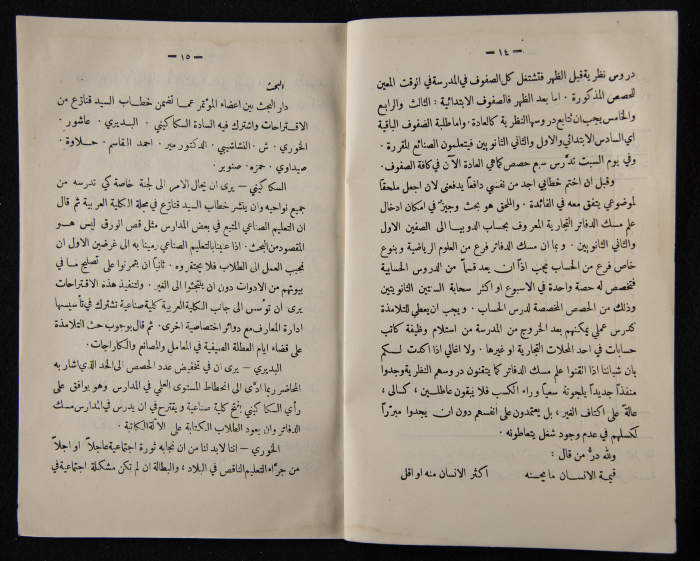 — ١٤ —
دروس نظرية قبل الظهر فتشتغل كل الصفوف في المدرسة في الوقت المعين
للحصص المذكورة . اما بعد الظهر فالصفوف الابتدائية : الثالث والرابع
والخامس يجب ان تتابع دروسها النظرية كالعادة. واما طلبة الصفوف الباقية
اي السادس الابتدائي والاول والثاني الثانويين فيتعلمون الصنائع المقررة .
وفي يوم السبت تدرّس سبع حصص كما هي العادة الآن في كافة الصفوف.
وقبل ان اختم خطابي اجد من نفسي دافعاً يدفعني لان اجعل ملحقاً
لموضوعي يتفق معه في الفائدة . والملحق هو بحث وجيز في امكان ادخال
علم مسك الدفاتر التجارية المعروف بحساب الدوبيا الى الصفين الاول
والثاني الثانويين . وبما ان مسك الدفاتر فرع من العلوم الرياضية وبنوع
خاص فرع من الحساب يجب اذاً ان يعد قسماً من الدروس الحسابية
فتخصص له حصة واحدة في الاسبوع او اكثر سحابة السنتين الثانويتين
وذلك من الحصص المخصصة لدرس الحساب . ويجب ان يعطى للتلامذة
كدرس عملي يمكنهم بعد الخروج من المدرسة من استلام وظيفة كاتب
حسابات في احد المحلات التجارية او غيرها . ولا اغالي اذا اكدت لكم
بان شباننا اذا اتقنوا علم مسك الدفاتر كما يتقنون دروسهم النظرية وجدوا
منفذاً جديداً يلجونه سعياً وراء الكسب فلا يبقون عاطلين ، كسالى ،
عالةً على اكتاف الغير ، بل يعتمدون على انفسهم دون ان يجدوا مبرّراً
لكسلهم في عدم وجود شغل يتعاطونه .
ولله درّ من قال :
قيمة الانسان ما يحسنه اكثر الانسان منه او اقل
— ١٥ —
البحث
دار البحث بين اعضاء المؤتمر عما تضمن خطاب السيد قنازع من
الاقتراحات واشترك فيه السادة السكاكيني . البديري . عاشور .
الخوري . ش . النشاشيبي . الدكتور مير . احمد القاسم . حلاوة .
صيداوي . حمزه . صنوبر .
السكاكيني — يرى ان يحال الامر الى لجنة خاصة كي تدرسه من
جميع نواحيه وان ينشر خطاب السيد قنازع في مجلة الكلية العربية ثم قال
ان التعليم الصناعي المتبع في بعض المدارس مثل قص الورق ليس هو
المقصود من البحث . اذا عنينا بالتعليم الصناعي رمينا به الى غرضين الاول ان
نحبب العمل الى الطلاب فلا يحتقروه . ثانياً ان يتمرنوا على تصليح ما في
بيوتهم من الادوات دون ان يلتجئوا الى الغير . ولتنفيذ هذه الاقتراحات
يرى ان تؤسس الى جانب الكلية العربية كلية صناعية تشترك في تأسيسها
ادارة المعارف مع دوائر اختصاصية اخرى . ثم قال بوجوب حث التلامذة
على قضاء ايام العطلة الصيفية في المعامل والمصانع والكاراجات .
البديري — يرى ان في تخفيض عدد الحصص الى الحد الذي اشار به
المحاضر ربما ادّى الى انحطاط المستوى العلمي في المدارس وهو يوافق على
رأي السكاكيني بفتح كلية صناعية ويقترح في ان يدرس في المدارس مسك
الدفاتر وان يعود الطلاب الكتابة على الآلة الكاتبة .
الخوري — اننا لا بد لنا من ان نجابه ثورة اجتماعية عاجلاً او اجلاً
من جرّاء التعليم الناقص في البلاد ، والبطالة ان لم تكن مشكلة اجتماعية في